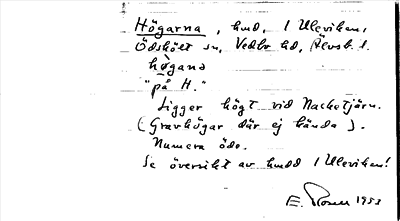 Högarna, hmd, i Uleviken,
Ödskölt sn, Vedbo hd, Älvsb. l.
hògana
"på H."
Ligger högt vid Nacketjärn.
(Gravhögar där ej kända).
Numera öde.
Se översikt av hmdd i Uleviken!
E. Rosell 1953